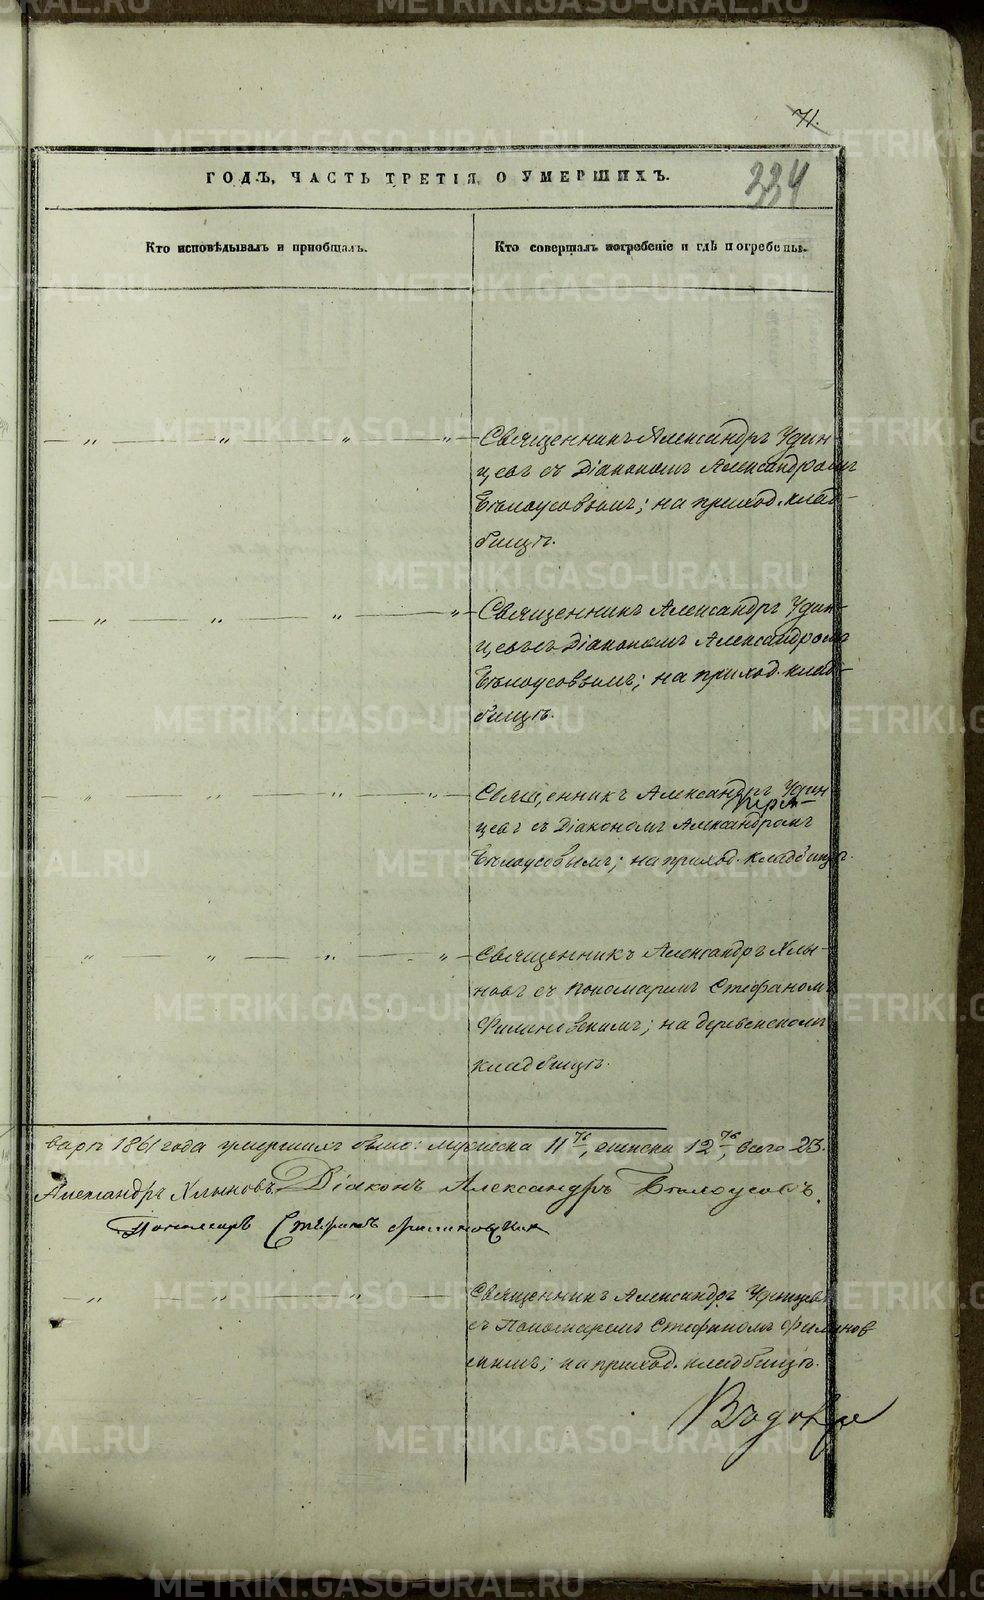 71.
ГОДЪ, ЧАСТЬ ТРЕТІЯ, О УМЕРШИХЪ.
224
Кто исповѣдывалъ и пріобщалъ.
Кто совершалъ погребеніе и гдѣ погребены.
Священникъ Александръ Удин-
цевъ съ Діакономъ Александромъ
Бѣлоусовымъ; на приход. клад-
бищѣ.
Священникъ Александръ Удин-
цевъ съ Діакономъ Александромъ
Бѣлоусовымъ; на приход. клад-
бищѣ.
Священникъ Александръ Удин-
цевъ съ Діакономъ Александромъ
Бѣлоусовымъ; на приход. кладбищѣ.
Священникъ Александръ Хлы-
новъ съ Пономаремъ Стефаномъ
Филиновскимъ; на деревенскомъ
кладбищѣ.
варѣ 1861 года умершихъ было: мужеска 11ть, женска 12ть, всего 23.
Александръ Хлыновъ. Діаконъ Александръ Бѣлоусовъ.
Пономарь Стефанъ Филиновскій
Священникъ Александръ Удинцевъ
съ Пономаремъ Стефаномъ Филинов
скимъ; на приход. кладбищѣ.
METRIKI.GASO-URAL.RU